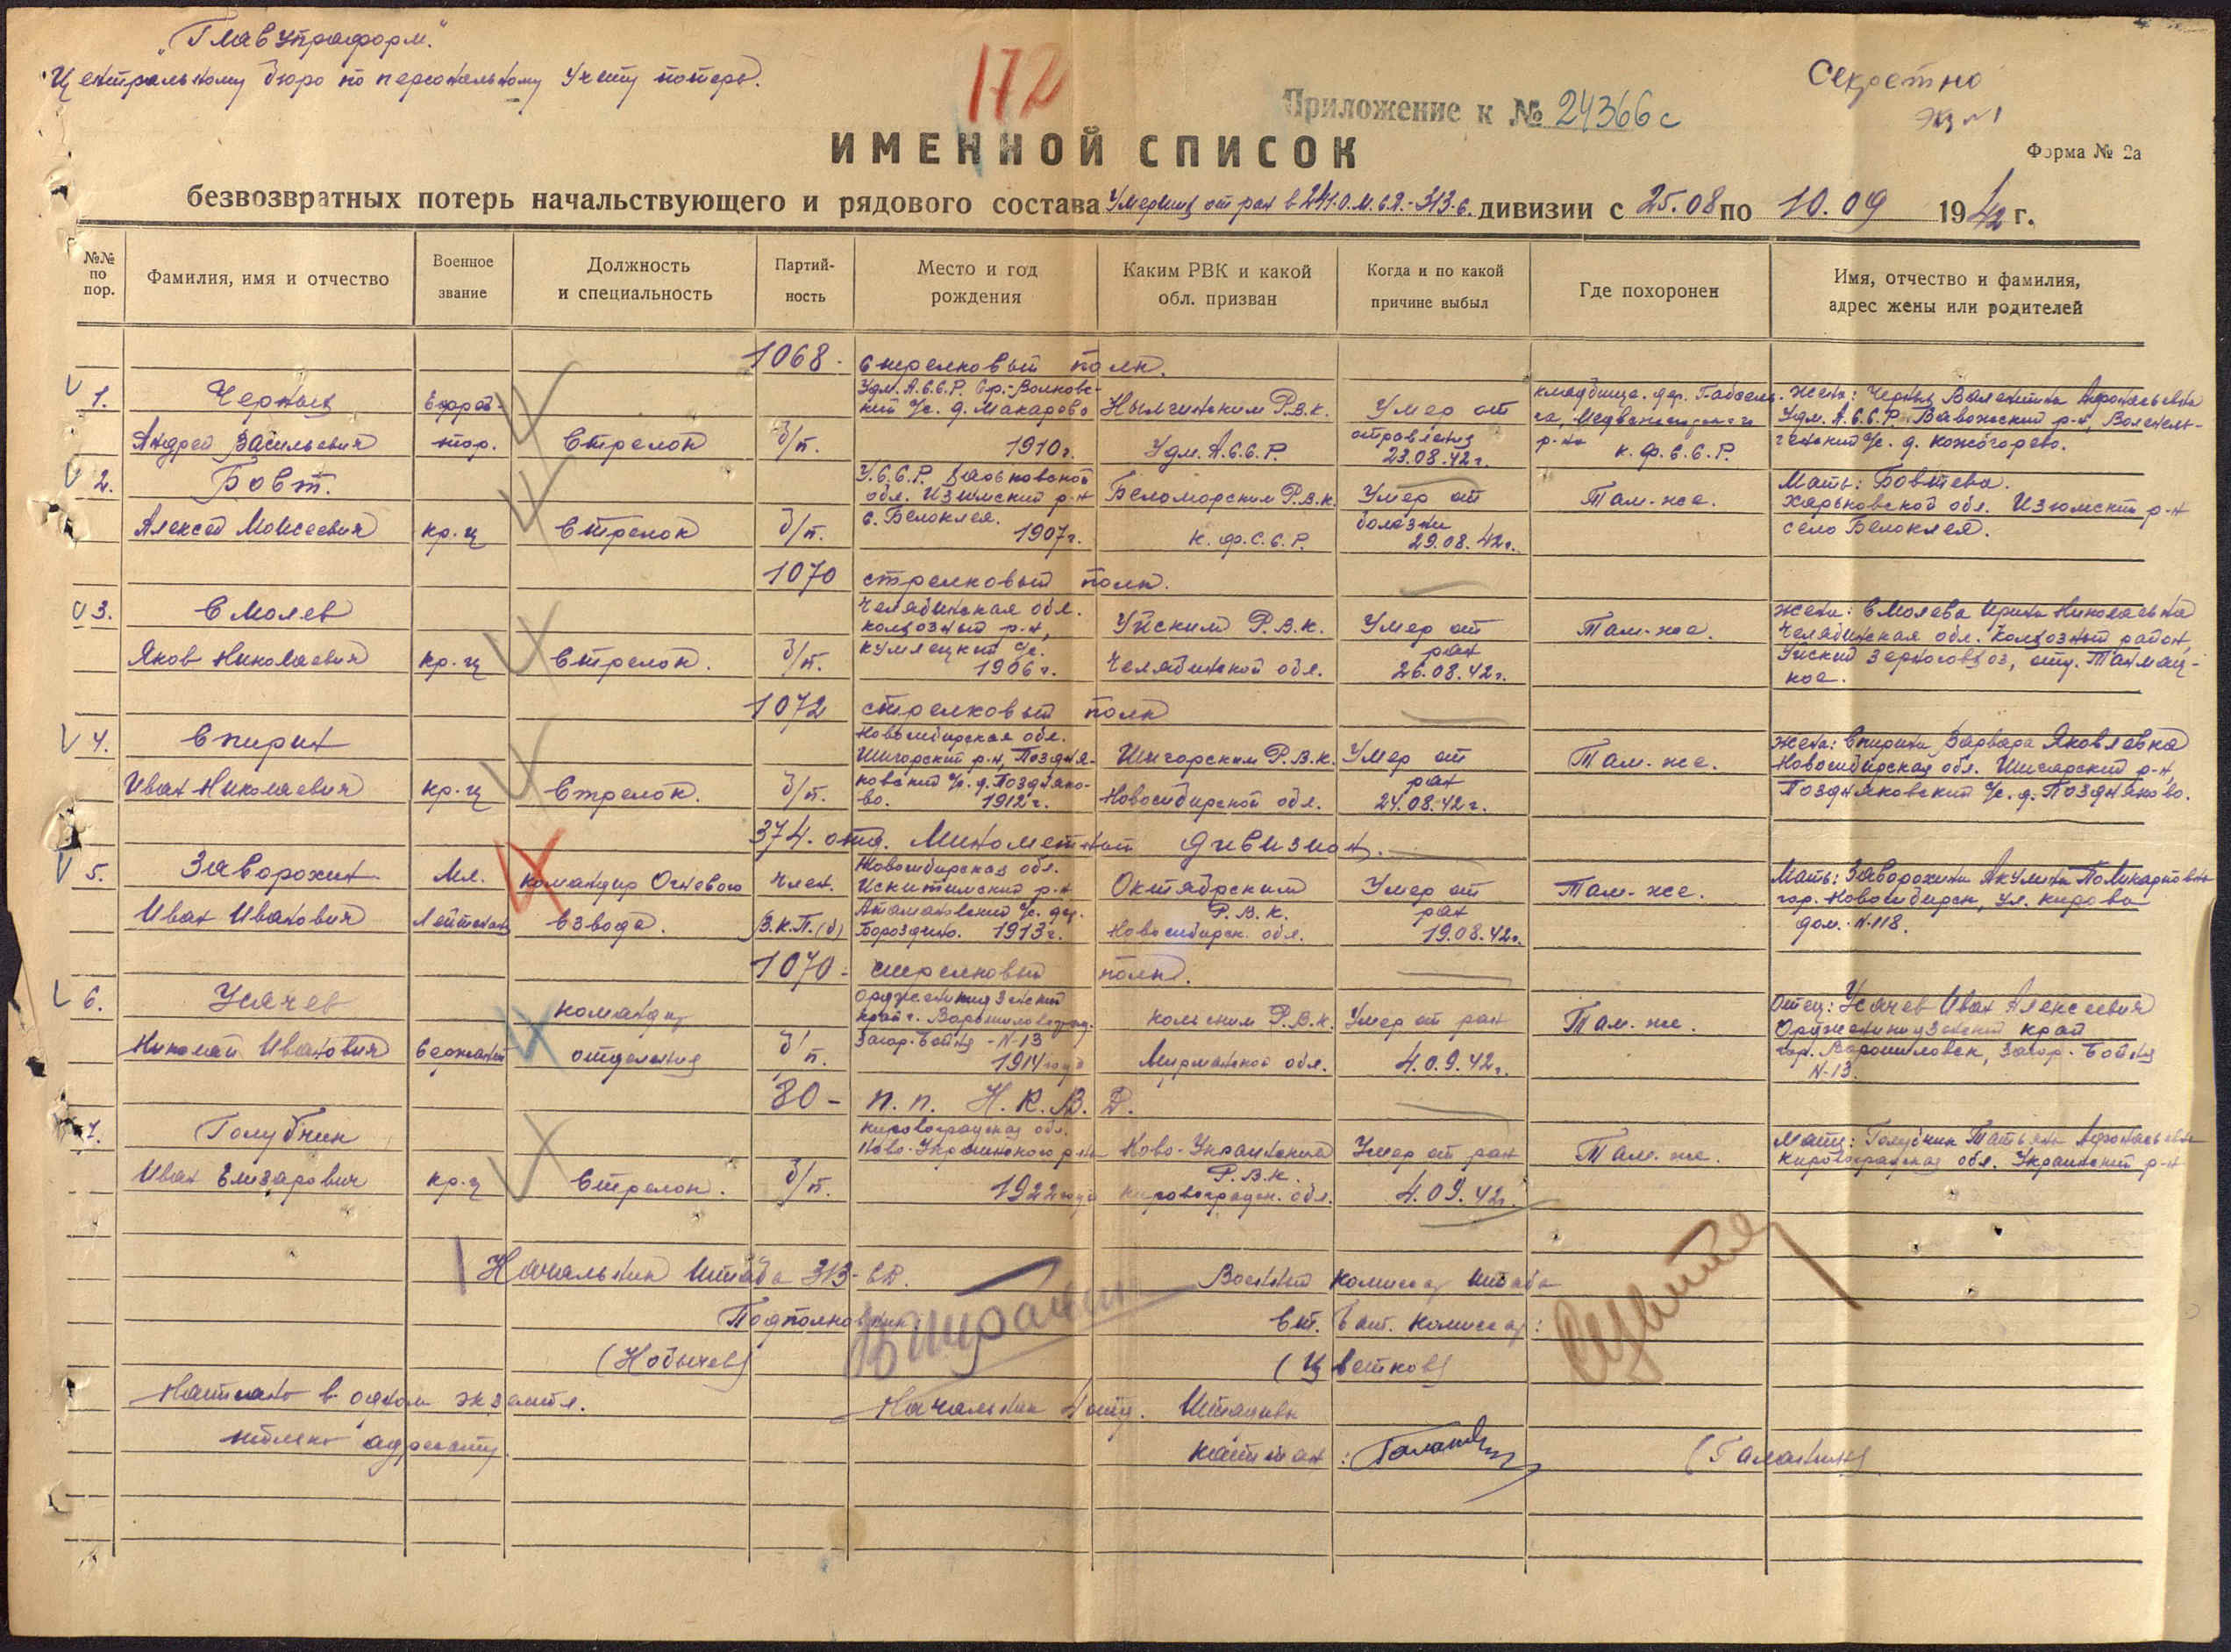 "Главупраформ."
Центральному бюро по персональному учету потерь.
172
Секретно
Экз №1
Приложение к № 24366с
ИМЕННОЙ СПИСОК
Форма № 2а
безвозвратных потерь начальствующего и рядового состава Умерших от ран в 241 О.М.С.Б.-313-С. дивизии с 25.08 по 10.09 1942 г.
№№ по пор.
Фамилия, имя и отчество
Военное звание
Должность и специальность
Партийность
Место и год рождения
Каким РВК и какой обл. призван
Когда и по какой причине выбыл
Где похоронен
Имя, отчество и фамилия, адрес жены или родителей
1068 - стрелковый полк.
1. Черных
Андрей Васильевич
Ефрей-
тор.
Стрелок
б/п.
Удм. А.С.С.Р. Ср.-Волковс-
кий с/с. д. Макарово
1910г.
Нылгинским Р.В.К.
Удм. А.С.С.Р.
Умер от
отравления
23.08.42г.
кладбище. дер.
р-на К.Ф.С.С.Р.
Жена: Черных Валентина Афонасьевна
Удм. А.С.С.Р. Вавожский р-н,
с/с. д. Кожогорево.
2. Бовт.
Алексей Моисеевич
кр-ц
Стрелок
б/п.
У.С.С.Р. Харьковской
обл. Изюмский р-н
с. Белоклея.
1907г.
Беломорским Р.В.К.
К.Ф.С.С.Р.
Умер от
болезни
29.08.42г.
Там-же.
Мать: Бовтева.
Харьковской обл. Изюмский р-н
село Белоклея.
1070 стрелковый полк.
3. Смолев
Яков Николаевич
кр-ц
Стрелок.
б/п.
Челябинская обл.
колхозный р-н,
Кумляцкий с/с.
1906г.
Уйским Р.В.К.
Челябинской обл.
Умер от
ран
26.08.42г.
Там-же.
Жена: Смолева Ирина Николаевна
Челябинская обл. Колхозный район,
Уйский зерносовхоз,
1072 стрелковый полк
4. Спирин
Иван Николаевич
кр-ц
Стрелок.
б/п.
Новосибирская обл.
Ижморский р-н, Поздня-
ковский с/с. д. Поздняко-
во. 1912г.
Ижморским Р.В.К.
Новосибирской обл.
Умер от
ран
24.08.42г.
Там-же.
Жена: Спирина Варвара Яковлевна
Новосибирская обл. Ижморский р-н,
Поздняковский с/с. д. Поздняково.
374. отд. Минометный дивизион.
5. Заворохин
Иван Иванович
Мл.
Лейтенант
командир Огневого
взвода.
член.
В.К.П.(б)
Новосибирская обл.
Искитимский р-н
Атамановский с/с. дер.
Бороздино. 1913г.
Октябрьским
Р.В.К.
Новосибирск. обл.
Умер от
ран
19.08.42г.
Там-же.
Мать: Заворохина Акулина Поликарповна
гор. Новосибирск, ул. Кирова
дом. №118.
1070 - стрелковый полк.
6. Усачев
Николай Иванович
Сержант
командир
отделения
б/п.
Орджоникидзевский
край г. Ворошиловград.
Загор. Бойня - №13
1914 года
Кольским Р.В.К.
Мурманской обл.
Умер от ран
4.09.42г.
Там-же.
Отец: Усачев Иван Алексеевич
Орджоникидзевский край
гор. Ворошиловск, Загор. Бойня
№13.
80 - п.п. Н.К.В.Д.
7. Голубчик
Иван Елизарович
кр-ц
Стрелок.
б/п.
Кировоградская обл.
Ново-Украинского р-на
1922 года
Ново-Украинским
Р.В.К.
Кировоградск. обл.
Умер от ран
4.09.42г.
Там-же.
Мать: Голубчик Татьяна Афонасьевна
Кировоградская обл. Украинский р-н
Начальник Штаба 313-СД.
Подполковник
(Кобычев)
Военный комиссар штаба
Ст. Бат. Комиссар:
(Цветков)
Написано в одном экземпл.
послано адресату.
Начальник 4 отд. Штадива
Капитан:
(Галанин)